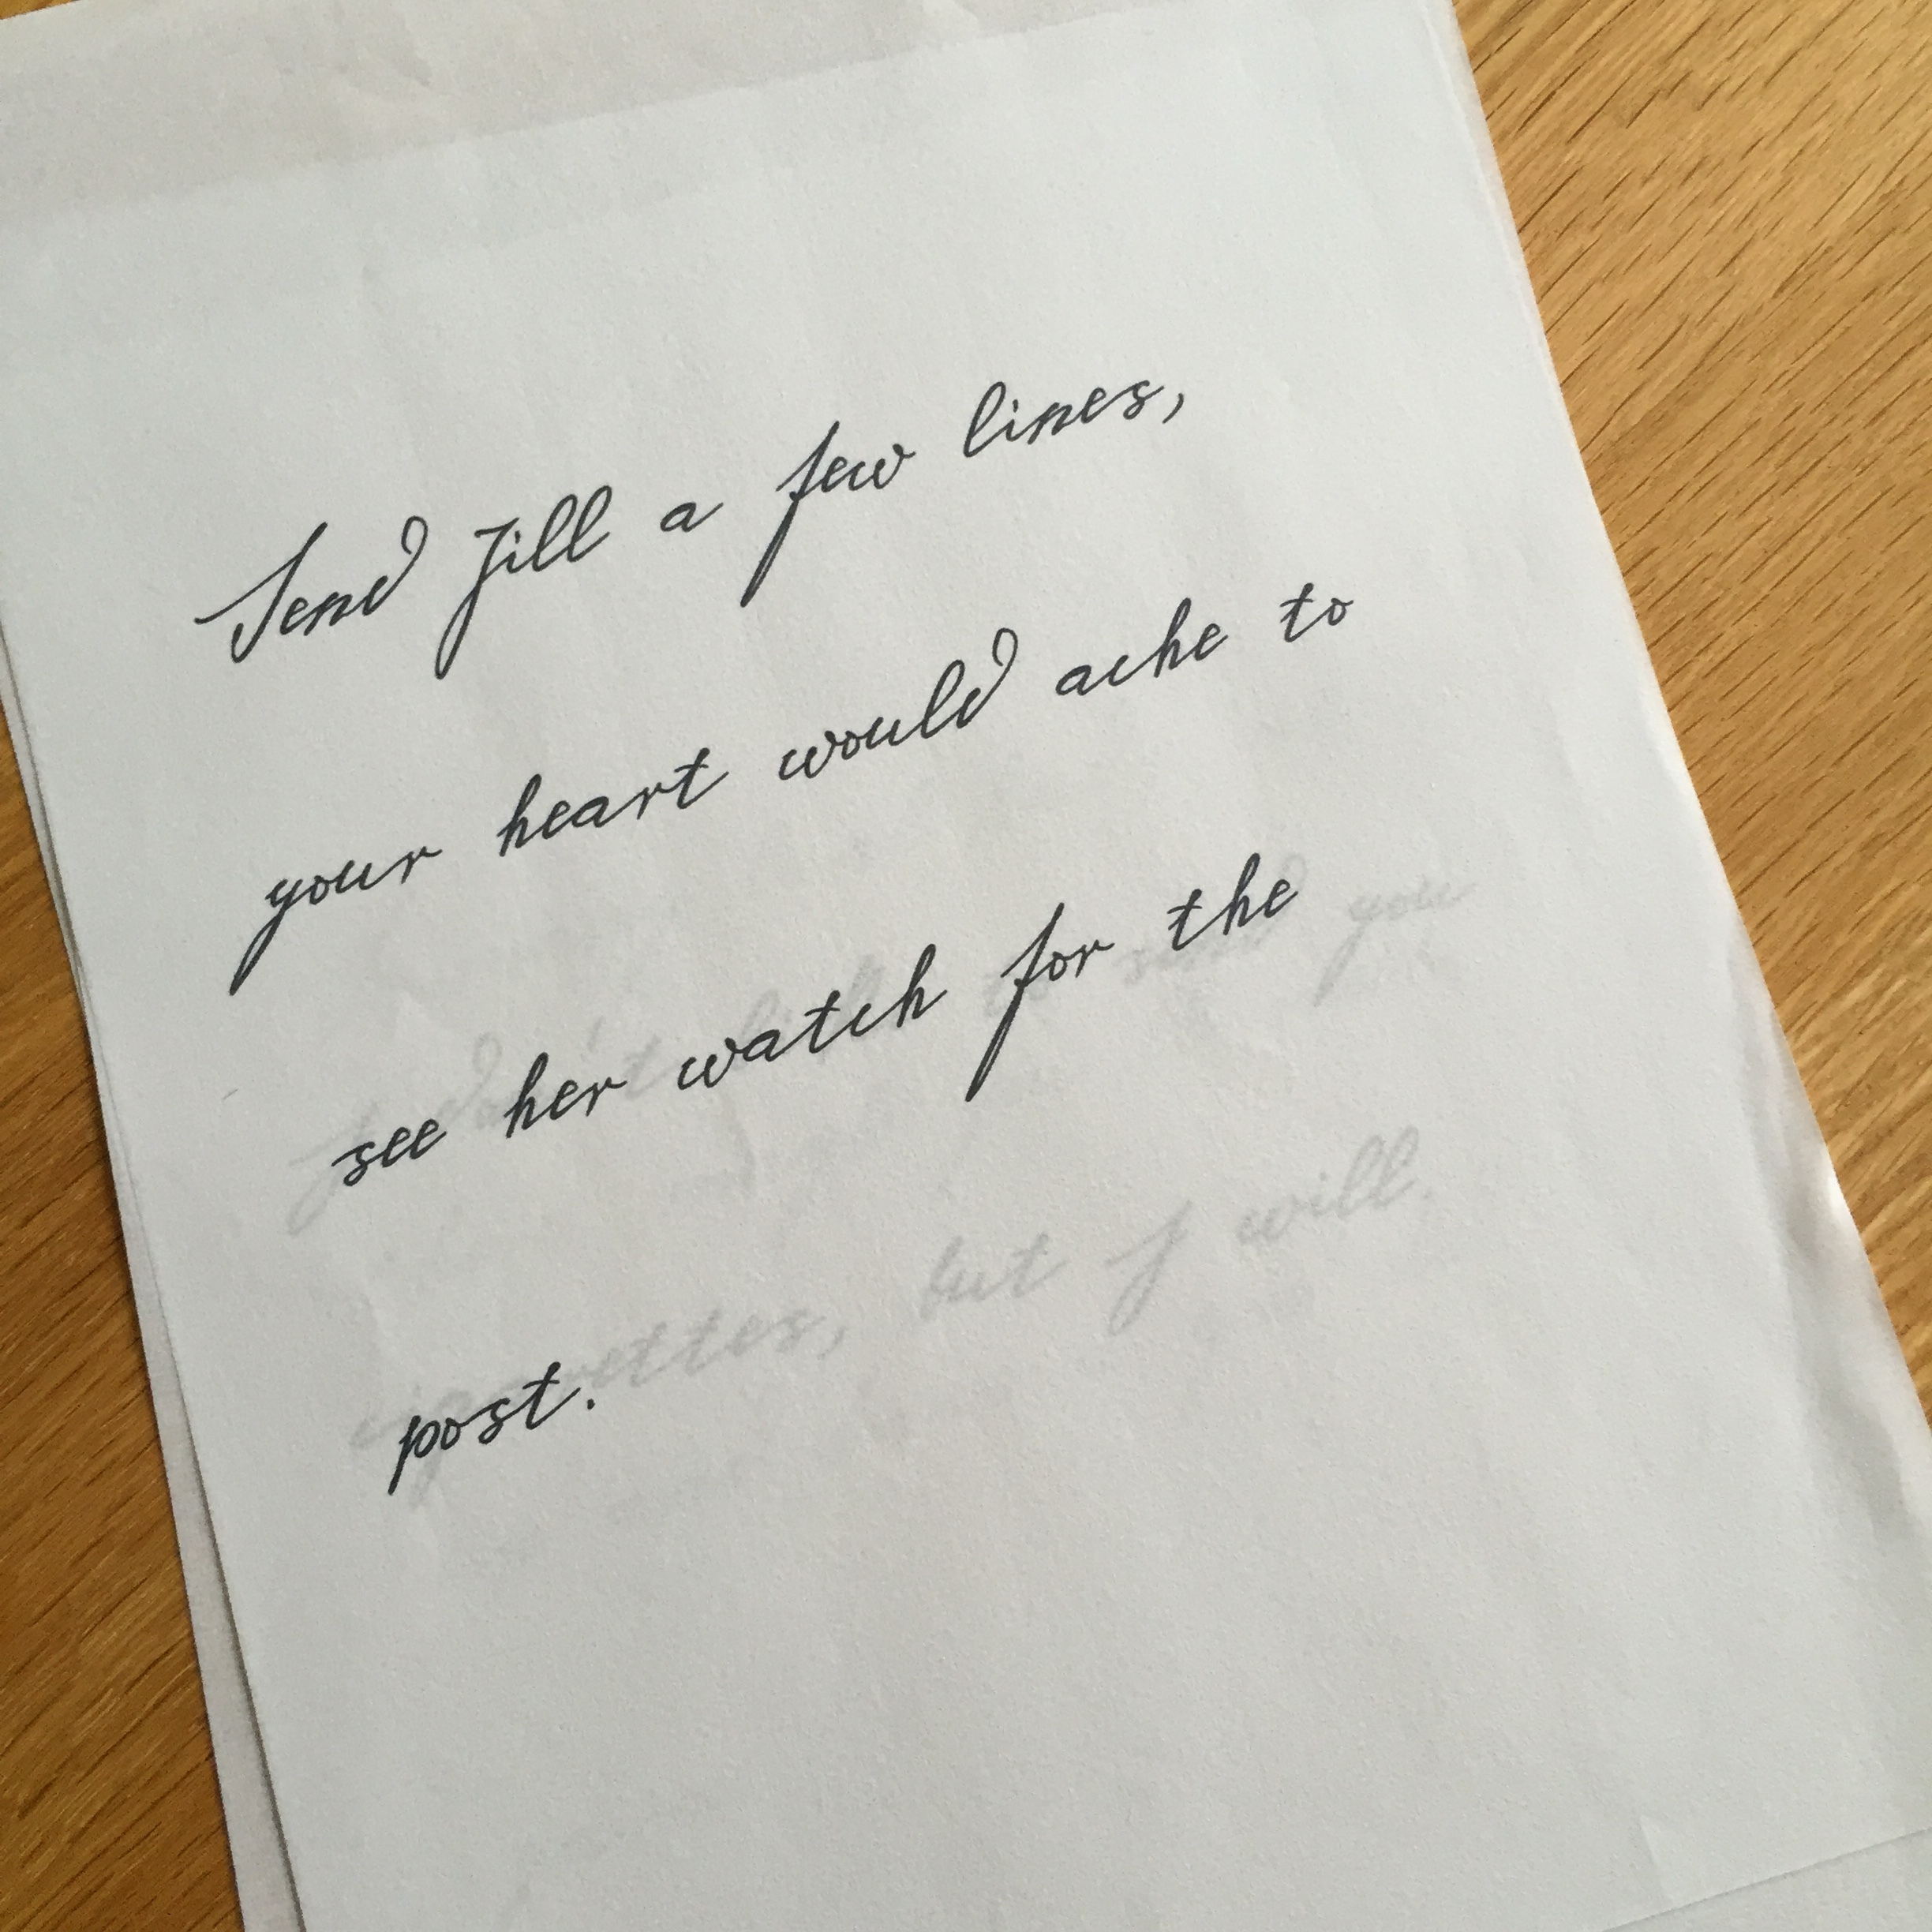 Send Jill a few lines,
your heart would ache to
see her watch for the
post.
I don't to send you
cigarettes, but I will.